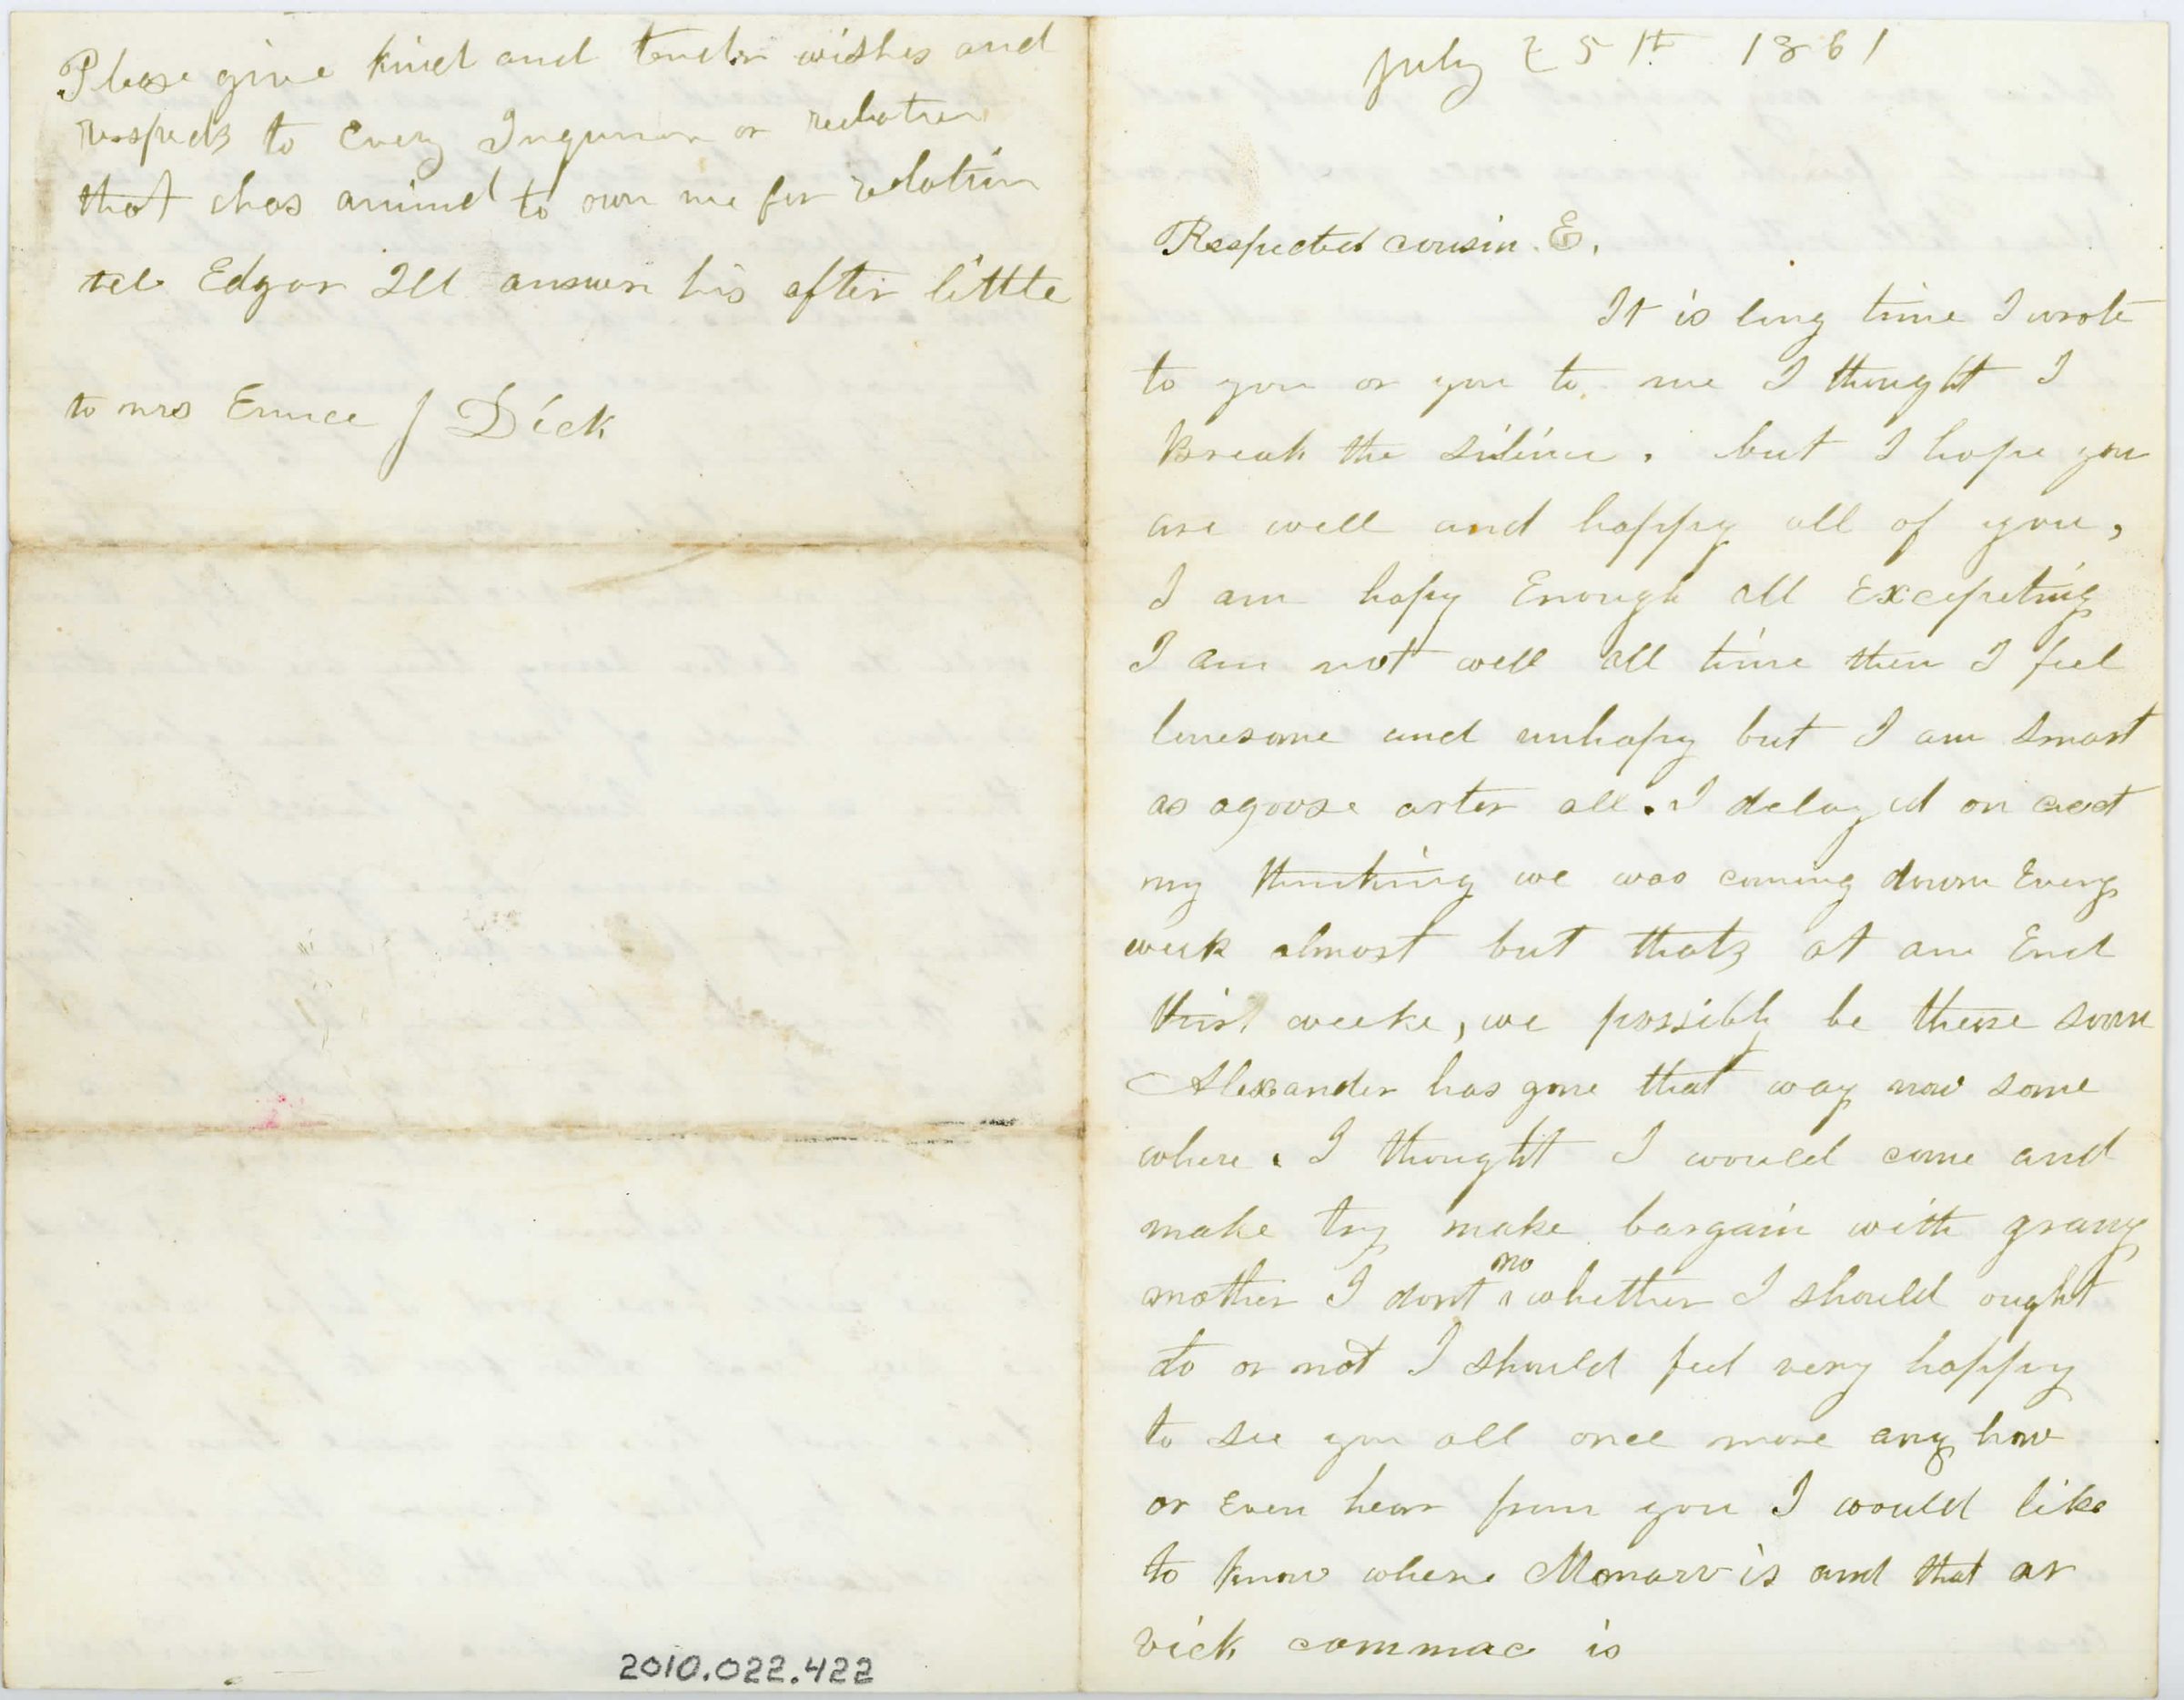 Please give kind and tender wishes and
respects to Every Inquirer or relation
that has amind to own me for relation
tel Edgar Ill answer his after little
to mrs Eunice J Dick
2010.022.422
July 25th 1861
Respected cousin. E.
It is long time I wrote
to you or you to me I thought I
Break the silince. but I hope you
are well and happy all of you,
I am hapy Enough all Excepeting
I am not well all time then I feel
lonesome and unhapy but I am smart
as agoose arter all. I delayed on acct
my thinking we was coming down Every
week almost but thats at an End
this weeke, we possibly be there soon
Alexander has gone that way now some
where. I thought I would come and
make try make bargain with grany
mother I dont no whether I should ought
to or not I should feel very happy
to see you all once more any how
or Even hear from you I would like
to know where is and that ar
vick commac is